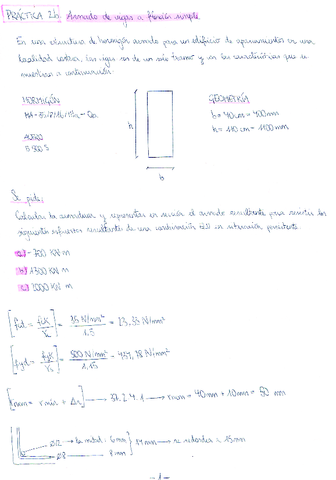 PRÁCTICA 2b: Armado de vigas a flexión simple
En una estructura de hormigón armado para un edificio de aparcamientos en una
localidad costera, las vigas son de un solo tramo y con las características que se
muestran a continuación:
HORMIGÓN
HA-35/
GEOMETRÍA
b = 40 cm = 400 mm
h = 110 cm = 1100 mm
ACERO
B 500 S
h
b
Se pide:
Calcular las armaduras y representar en sección el armado resultante para resistir los
siguientes esfuerzos resultantes de una combinación ELU en situación persistente.
a) - 700 KN m
b) 1300 KN m
c) 2000 KN m
[fcd = fck/γc] = 35 N/mm²/1,5 = 23,33 N/mm²
[fyd = fyk/γs] = 500 N/mm²/1,15 = 434,78 N/mm²
[rnom = rmin + Δr] → 37.2.4.1 → rnom = 40mm + 10mm = 50 mm
Ø12 → la mitad: 6mm
Ø8 8 mm
14mm → se redondea = 15mm
-1-